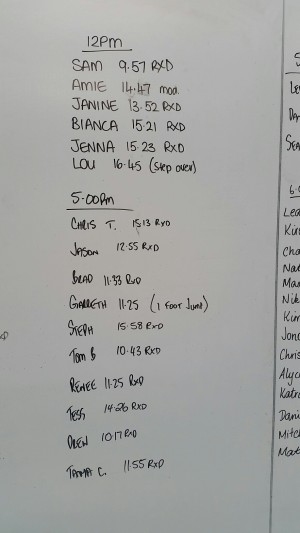 12PM
SAM 9.57 RXD
AMIE 14.47 mod.
JANINE 13.52 RXD
BIANCA 15.21 RXD
JENNA 15.23 RXD
LOU 16.45 (Step over)
5:00PM
CHRIS T. 15:13 RXD
JASON 12:55 RXD
BRAD 11:33 RXD
GARRETH 11:25 (1 FOOT JUMP)
STEPH 15:58 RXD
TOM B 10:43 RXD
RENEE 11:25 RXD
TESS 14:26 RXD
DREW 10:17 RXD
TAMMI C. 11:55 RXD
5
Le
Da
Sea
6:0
Lea
Kin
Cha
Nat
Mar
Nik
Kim
Jono
Chris
Alyc
Katr
Dani
Mitch
Mat